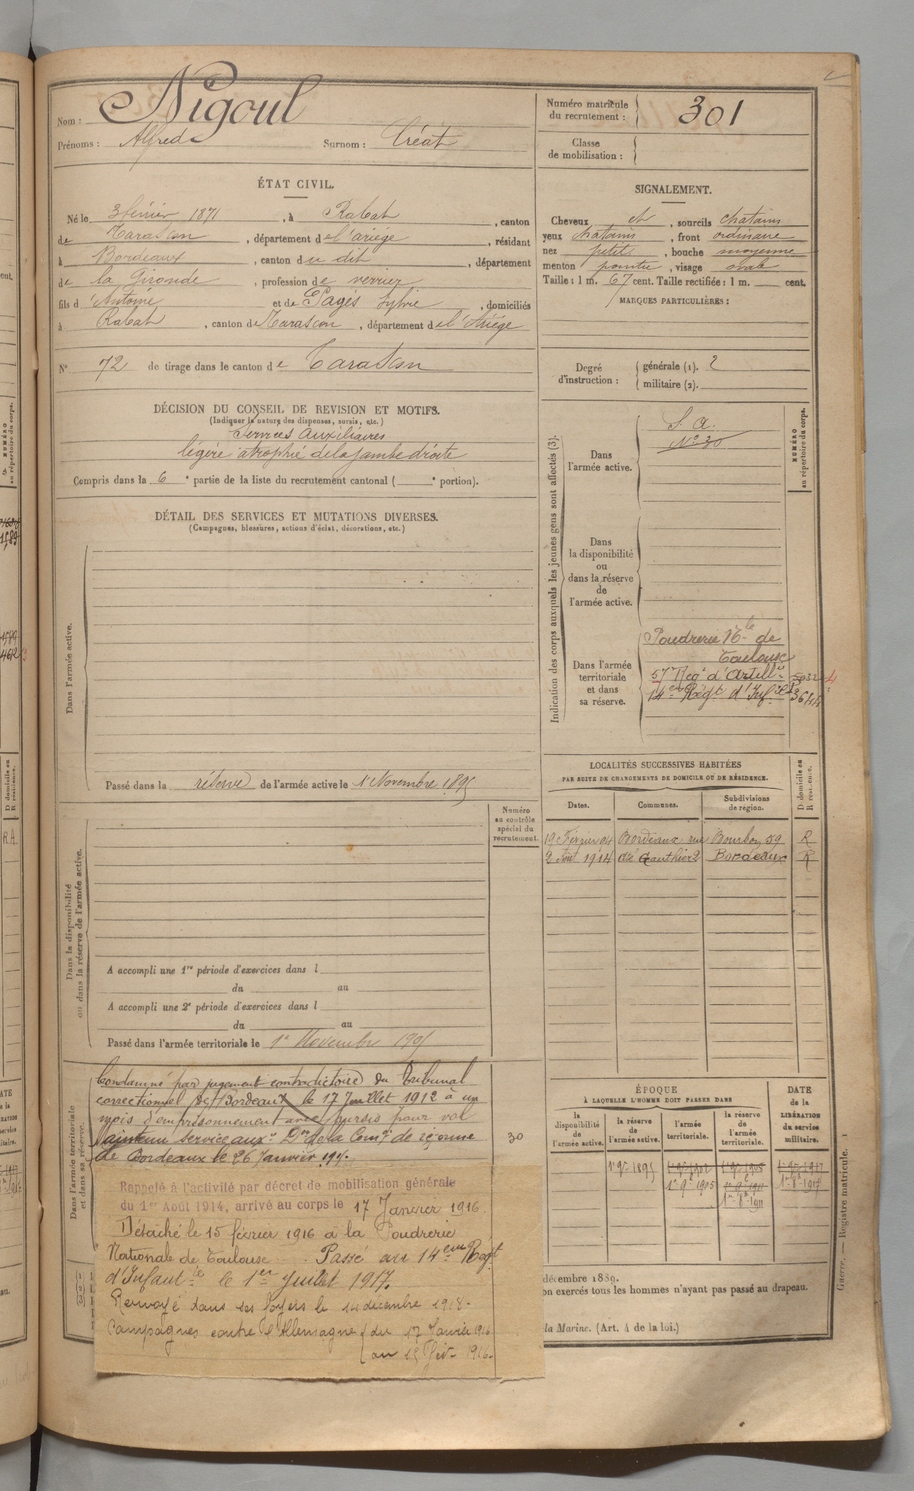 Nom : Nigoul
Prénoms : Alfred Surnom : Créat
Numéro matricule du recrutement : 301
Classe de mobilisation :
ÉTAT CIVIL.
Né le 3 février 1871, à Rabat, canton
de Tarascon, département de l'ariège, résidant
à Bordeaux, canton du dit, département
de la Gironde, profession de verrier
fils d'Antoine et de Pagès Sylvie, domiciliés
à Rabat, canton de Tarascon, département de l'Ariège
N° 72 de tirage dans le canton de Tarascon
SIGNALEMENT.
Cheveux et, sourcils chatains
yeux chatains, front ordinaire
nez petit, bouche moyenne
menton pointu, visage ovale
Taille : 1 m. 67 cent. Taille rectifiée : 1 m. cent.
MARQUES PARTICULIÈRES :
Degré d'instruction : générale (1). 2
militaire (2).
DÉCISION DU CONSEIL DE REVISION ET MOTIFS.
(Indiquer la nature des dispenses, sursis, etc.)
Services Auxiliaires
légère atrophie de la jambe droite
Compris dans la 6e partie de la liste du recrutement cantonal ( e portion).
DÉTAIL DES SERVICES ET MUTATIONS DIVERSES.
(Campagnes, blessures, actions d'éclat, décorations, etc.)
Dans l'armée active.
Passé dans la réserve de l'armée active le 1 Novembre 1895
Numéro au contrôle spécial du recrutement.
Dans la disponibilité ou dans la réserve de l'armée active.
A accompli une 1re période d'exercices dans l
du au
A accompli une 2e période d'exercices dans l
du au
Passé dans l'armée territoriale le 1er Novembre 1905
Dans l'armée territoriale et dans sa réserve.
Condamné par jugement contradictoire du Tribunal
correctionnel de Bordeaux le 17 Juillet 1912 à un
mois d'emprisonnement avec sursis pour vol
Maintenu service auxre
de Bordeaux le 26 Janvier
30
Rappelé à l'activité par décret de mobilisation générale
du 1er Août 1914, arrivé au corps le 17 Janvier 1916.
Détaché le 15 février 1916 à la Poudrerie
Nationale de Toulouse. Passé au 14eme Regt
d'Infantie le 1er Juillet 1917.
Renvoyé dans ses foyers le 14 décembre 1918.
Campagnes contre l'Allemagne du 17 Janvier 1916
au 15 Fév. 1916.
Indication des corps auxquels les jeunes gens sont affectés (3).
NUMÉRO au répertoire du corps.
Dans l'armée active.
S. a.
N° 30
Dans la disponibilité ou dans la réserve de l'armée active.
Dans l'armée territoriale et dans sa réserve.
Poudrerie Nle de
Toulouse
57 Regt d'Artillie
14eme Regt d'Infie
LOCALITÉS SUCCESSIVES HABITÉES
PAR SUITE DE CHANGEMENTS DE DOMICILE OU DE RÉSIDENCE.
Dates. Communes. Subdivisions de région. D domicile ou R résidence.
Bordeaux rue Bourbon 59 R
2 Août 1914 cité Gauthier 2 Bordeaux R
ÉPOQUE
À LAQUELLE L'HOMME DOIT PASSER DANS
la disponibilité de l'armée active. la réserve de l'armée active. l'armée territoriale. la réserve de l'armée territoriale.
DATE de la LIBÉRATION du service militaire.
décembre 1889.
on exercés tous les hommes n'ayant pas passé au drapeau.
la Marine. (Art. 4 de la loi.)
Guerre. — Registre matricule. 1